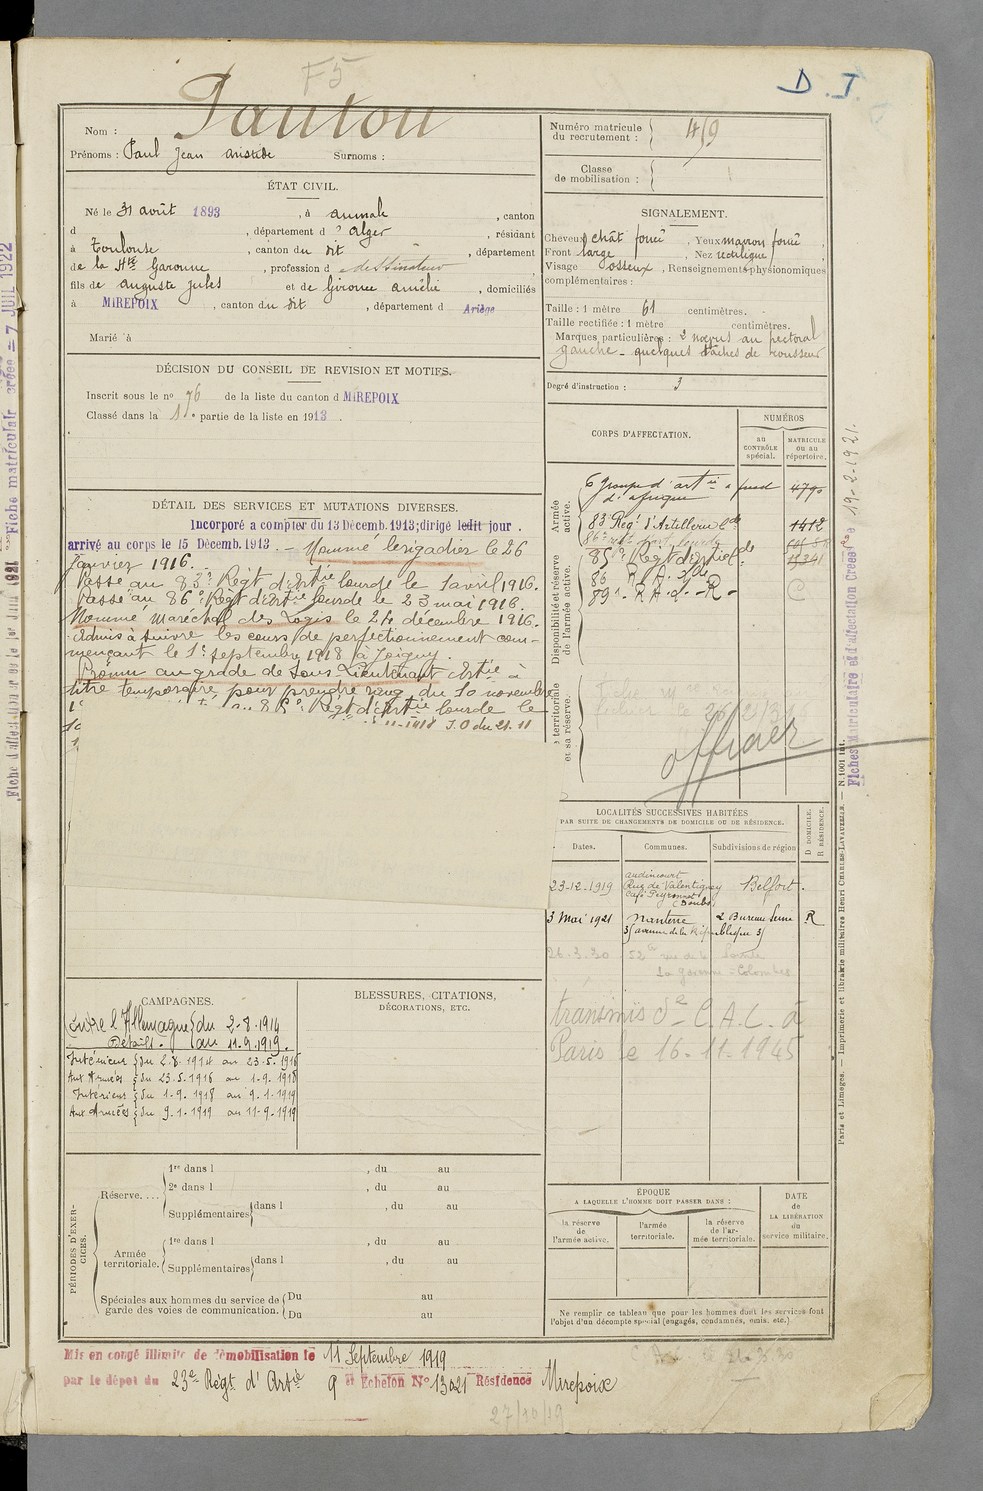 F5
D. I.
Nom : Pauton
Prénoms : Paul Jean Aristide Surnoms :
ÉTAT CIVIL.
Né le 31 avril 1893, à aumale, canton
d , département d'Alger, résidant
à Toulouse, canton du dit, département
de la Hte Garonne, profession d e dessinateur
fils de auguste jules et de Gironce amélie, domiciliés
à MIREPOIX, canton du dit, département d Ariège
Marié à
DÉCISION DU CONSEIL DE REVISION ET MOTIFS.
Inscrit sous le no 76 de la liste du canton d MIREPOIX
Classé dans la 1re partie de la liste en 1913.
DÉTAIL DES SERVICES ET MUTATIONS DIVERSES.
Incorporé a compter du 13 Décemb. 1913; dirigé ledit jour.
arrivé au corps le 15 Décemb. 1913. - Nommé brigadier le 26
Janvier 1916.
Passé au 83e Régt d'Artie lourde le 1 avril 1916.
Passé au 86e Régt d'Artie lourde le 23 mai 1916.
Nommé Maréchal des Logis le 24 décembre 1916.
Admis à suivre les cours de perfectionnement com-
mençant le 1er septembre 1918 à Joigny.
Promu au grade de Sous-Lieutenant d'Artie à
titre temporaire pour prendre rang du 10 novembre
au 86e Régt d'Artie lourde le
11-1918 J.O du 21.11
CAMPAGNES.
Contre l'Allemagne du 2-8-1914
Détail. au 11.9.1919.
Intérieur du 2-8-1914 au 23-5-1916
Aux Armées du 23-5-1916 au 1-9-1918
Intérieur du 1-9-1918 au 9-1-1919
Aux Armées du 9-1-1919 au 11-9-1919
BLESSURES, CITATIONS,
DÉCORATIONS, ETC.
PÉRIODES D'EXERCICES.
Réserve....
1re dans l , du au
2e dans l , du au
Supplémentaires dans l , du au
Armée territoriale.
1re dans l , du au
Supplémentaires dans l , du au
Spéciales aux hommes du service de garde des voies de communication.
Du au
Du au
Mis en congé illimité de démobilisation le 11 Septembre 1919
par le dépôt du 23e Régt d'Artie 9 e Echelon No 13021 Résidence Mirepoix
27/10/19
Numéro matricule
du recrutement : 459
Classe
de mobilisation :
SIGNALEMENT.
Cheveux chât foncé, Yeux marron foncé,
Front large, Nez rectiligne,
Visage osseux, Renseignements physionomiques
complémentaires :
Taille : 1 mètre 61 centimètres.
Taille rectifiée : 1 mètre centimètres.
Marques particulières : 2 nœvus au pectoral
gauche - quelques tâches de rousseur
Degré d'instruction : 3
CORPS D'AFFECTATION.
NUMÉROS
au
CONTRÔLE
spécial.
MATRICULE
ou au
répertoire.
Armée
active.
6 groupe d'artie a pied
d'afrique 4790
83e Regt d'Artillerie lde 1412
Disponibilité et réserve
de l'armée active.
86e regt Art. lourde
85e Regt d'Artie lde 15341
86 R. A. Lde C
89e - R A. d. - R -
territoriale
et sa réserve.
officier
LOCALITÉS SUCCESSIVES HABITÉES
PAR SUITE DE CHANGEMENTS DE DOMICILE OU DE RÉSIDENCE.
Dates. Communes. Subdivisions de région
D. DOMICILE.
R. RÉSIDENCE.
23-12-1919 audincourt Belfort.
Rue de Valentigney
Café Peyronnet
(Doubs)
3 Mai 1921 Nanterre 2 Bureau Seine R
35 avenue de la République 35
26-3-30 52 rue de la
La Garenne-Colombes
transmis de C.A.C. à
Paris le 16-11-1945
ÉPOQUE
A LAQUELLE L'HOMME DOIT PASSER DANS :
la réserve
de
l'armée active.
l'armée
territoriale.
la réserve
de l'ar-
mée territoriale.
DATE
de
LA LIBÉRATION
du
service militaire.
Ne remplir ce tableau que pour les hommes dont les services font
l'objet d'un décompte spécial (engagés, condamnés, omis, etc.)
Fiches Matriculaire et d'affectation Créées le 19-2-1921.
Paris et Limoges. — Imprimerie et librairie militaires Henri CHARLES-LAVAUZELLE. — N. 1001 int.
Fiche matriculaire créée = 7 JUIL 1922
Fiche d'affectation créée le 1er Juin 1921